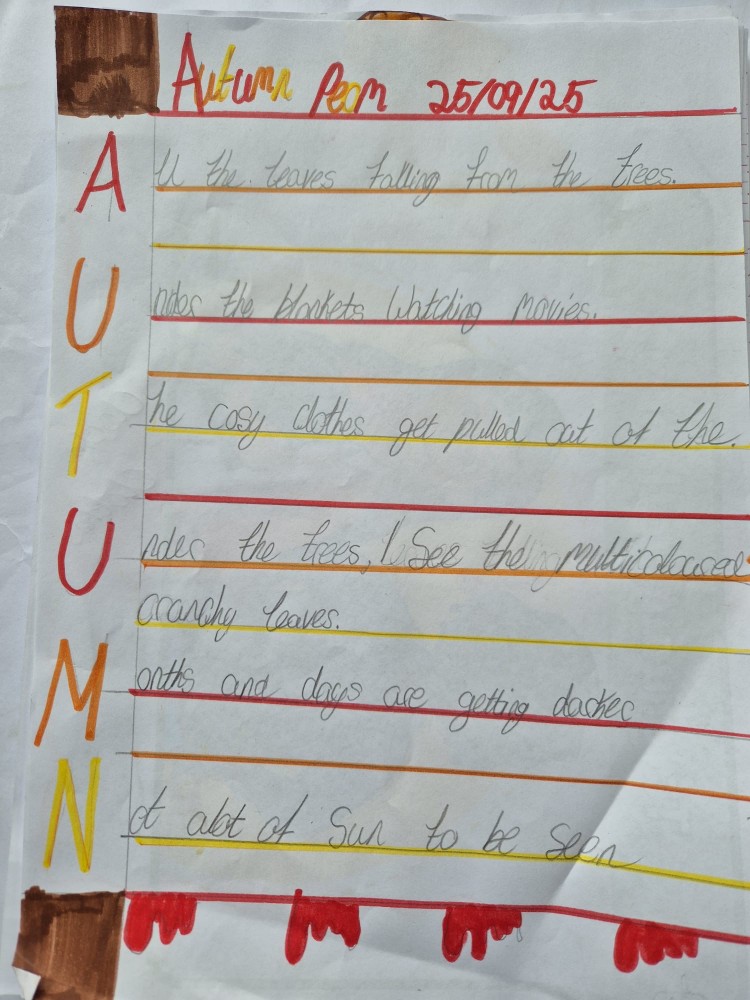 Autumn Poem 25/09/25
All the leaves falling from the trees.
Under the blankets Watching movies.
The cosy clothes get pulled out of the.
Under the trees, I See the multicoloured
crunchy leaves.
Months and days are getting darker
Not alot of Sun to be seen